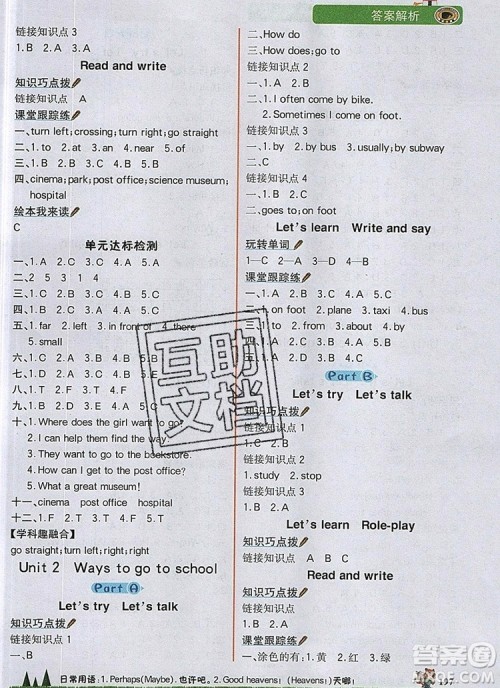 答案解析
链接知识点 3
1. B 2. A 3. A
Read and write
知识巧点拨
链接知识点 A
课堂跟踪练
一、turn left; crossing; turn right; go straight
二、1. to 2. at 3. an 4. near 5. of
三、1. D 2. B 3. A 4. C 5. A
四、cinema; park; post office; science museum;
hospital
绘本我来读
C
单元达标检测
一、1. A 2. C 3. C 4. A 5. A
二、2 5 3 1 4
三、1. B 2. C 3. B 4. A 5. C
四、1. B 2. A 3. C 4. A 5. B
五、1. far 2. left 3. in front of 4. there
5. small
六、1. C 2. C 3. A 4. B 5. A
七、1. C 2. A 3. D 4. B 5.
八、1. B 2. A 3. B 4. C 5.
九、1. D 2. E 3. C 4. A 5.
十、1. Where does the girl want to go?
2. I can help them find the way.
3. They want to go to the bookstore.
4. How can I get to the post office?
5. What a great museum!
十一、cinema post office hospital
十二、1. F 2. T 3. T 4. F 5. T
【学科趣融合】
go straight; turn left; right; right
Unit 2 Ways to go to school
Part A
Let's try Let's talk
知识巧点拨
链接知识点 1
一、B
二、How do
三、How does; go to
链接知识点 2
1. I often come by bike.
2. Sometimes I come on foot.
链接知识点 3
一、1. by 2. by bus 3. usually; by subway
二、C
链接知识点 4
一、1. A 2. B
二、goes to; on foot
Let's learn Write and say
玩转单词
1—C 2—A 3—D 4—B
课堂跟踪练
一、1. A 2. C 3. C 4. A 5. A
二、1. on foot 2. plane 3. taxi 4. bus
三、1. to 2. from 3. about 4. by
四、1. D 2. A 3. B 4. C
五、1. B 2. C 3. A 4. A 5. C
Part B
Let's try Let's talk
知识巧点拨
链接知识点 1
1. C 2. B
链接知识点 2
1. study 2. stop
链接知识点 3
一、B
Let's learn Role-play
链接知识点 A B C
Read and write
知识巧点拨
链接知识点 1. A 2. B
课堂跟踪练
一、涂色的有:1. 黄 2. 红 3. 绿
日常用语:1. Perhaps(Maybe). 也许吧。2. Good heavens! (Heavens!)天哪!
互助文档